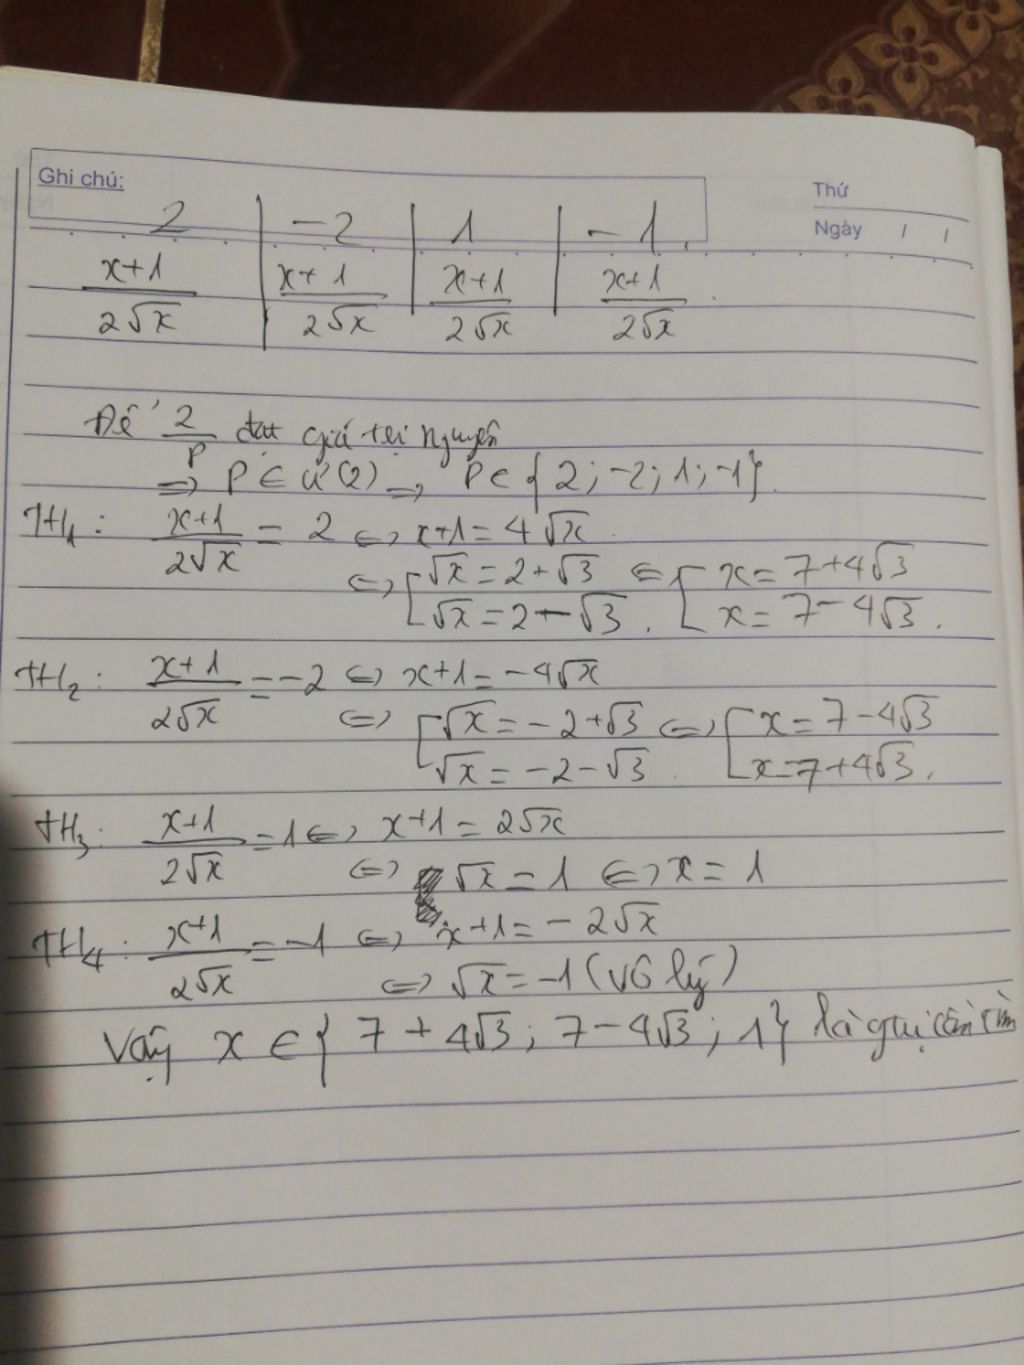 Ghi chú:
Thứ
Ngày / /
2 | -2 | 1 | -1
x+1/2√x | x+1/2√x | x+1/2√x | x+1/2√x
Để 2/P đạt giá trị nguyên
=> P ∈ Ư(2) => P ∈ {2; -2; 1; -1}.
TH1: x+1/2√x = 2 <=> x+1 = 4√x
<=> [√x = 2+√3 <=> [x = 7+4√3
√x = 2-√3. x = 7-4√3.
TH2: x+1/2√x = -2 <=> x+1 = -4√x
<=> [√x = -2+√3 <=> [x = 7-4√3
√x = -2-√3. x = 7+4√3.
TH3: x+1/2√x = 1 <=> x+1 = 2√x
<=> √x = 1 <=> x = 1
TH4: x+1/2√x = -1 <=> x+1 = -2√x
<=> √x = -1 (vô lý)
Vậy x ∈ {7+4√3; 7-4√3; 1} là gtrị cần tìm